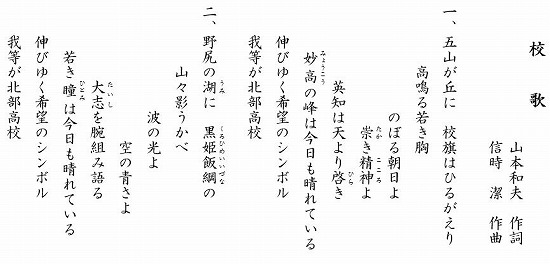 校歌
山本和夫 作詞
信時 潔 作曲
一、五山が丘に 校旗はひるがえり
高鳴る若き胸
のぼる朝日よ
崇き精神よ
英知は天より啓き
妙高の峰は今日も晴れている
伸びゆく希望のシンボル
我等が北部高校
二、野尻の湖に 黒姫飯綱の
山々影うかべ
波の光よ
空の青さよ
大志を腕組み語る
若き瞳は今日も晴れている
伸びゆく希望のシンボル
我等が北部高校